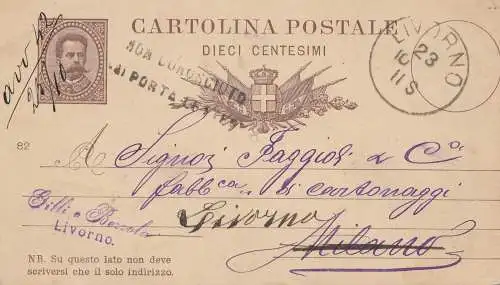 CARTOLINA POSTALE
DIECI CENTESIMI
NON CONOSCIUTO
PORTA
LIVORNO
23
10
11 S
27/10
82
A Signori Faggioli & Cⁱ
fabb.ca di cartonaggi
Livorno
Milano
Gilli e
Livorno.
NB. Su questo lato non deve
scriversi che il solo indirizzo.